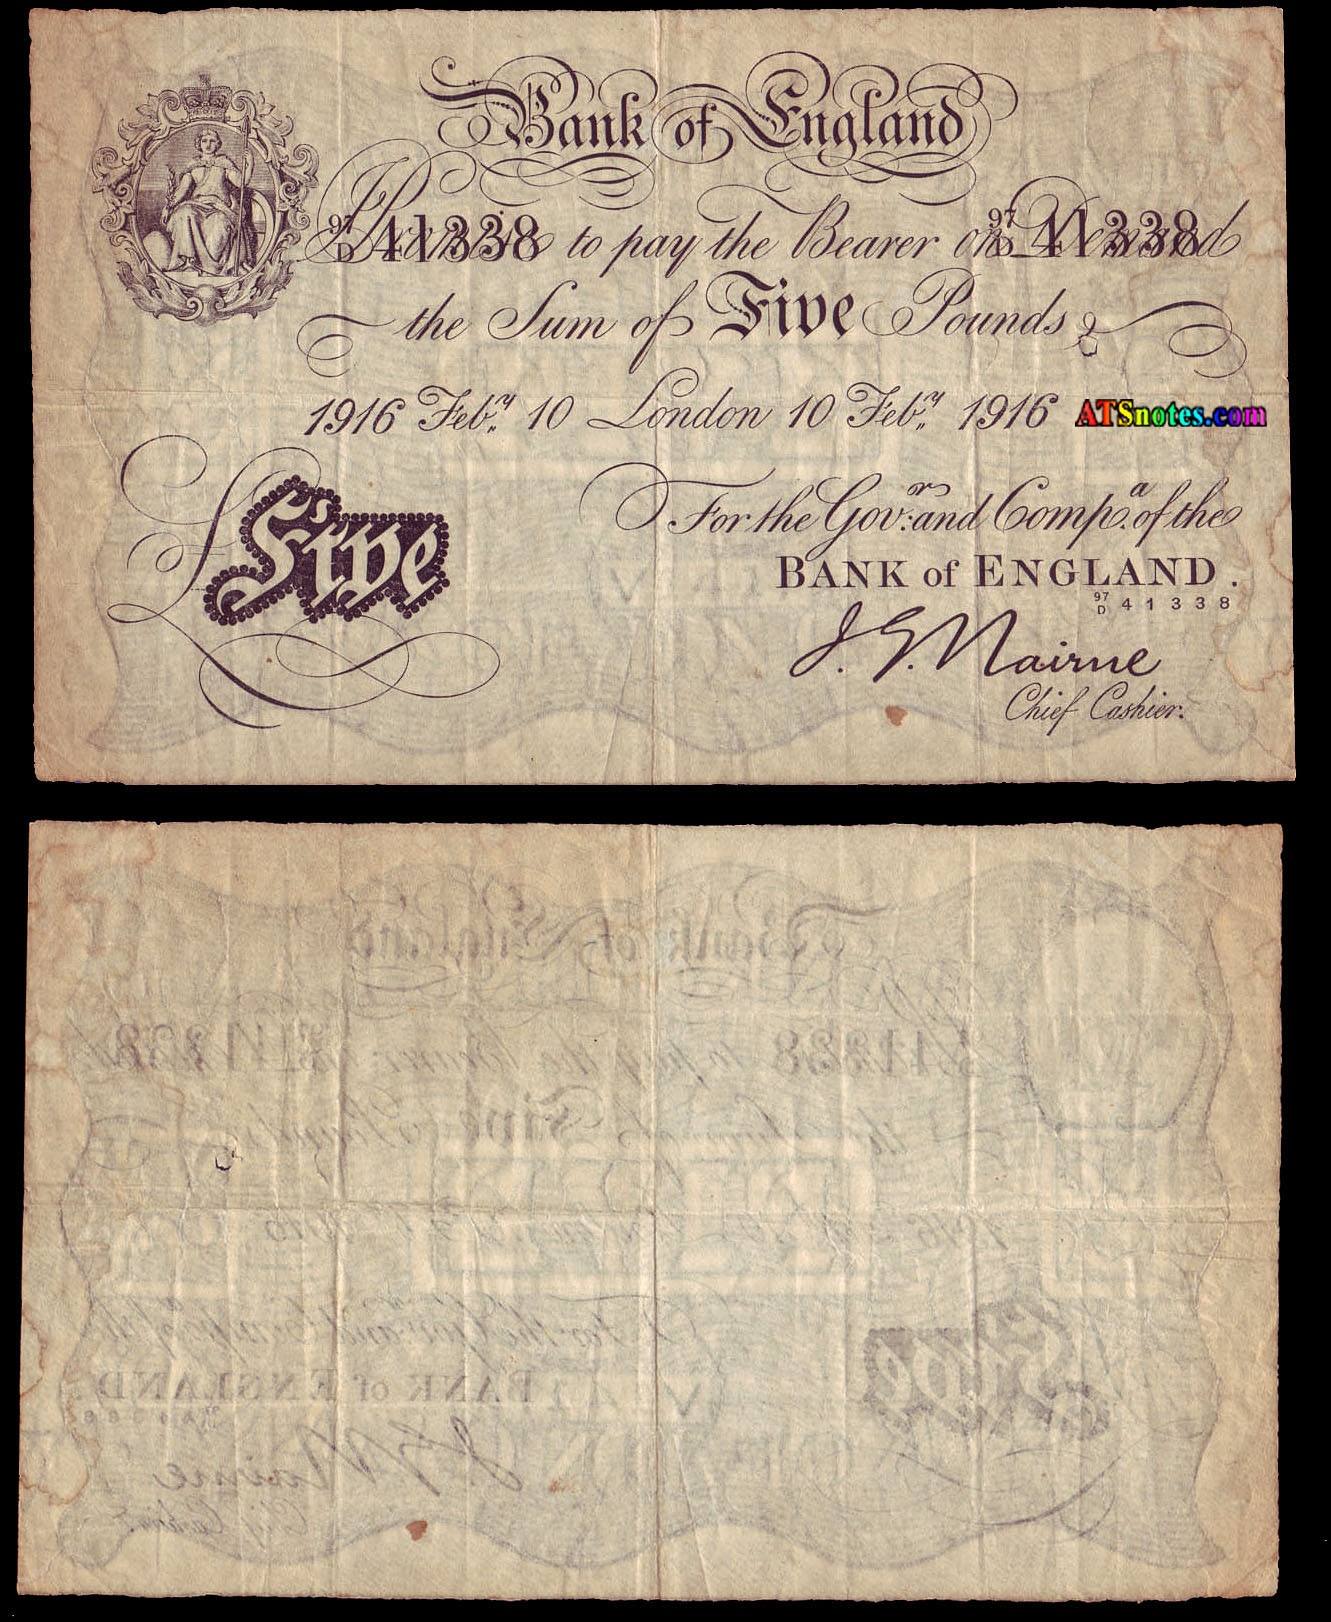 Bank of England
I Promise to pay the Bearer on Demand
97 D 41338 97 D 41338
the Sum of Five Pounds
1916 Feby. 10 London 10 Feby. 1916
ATSnotes.com
£Five
For the Govr. and Compa. of the
BANK of ENGLAND.
97 D 41338
J. G. Nairne
Chief Cashier.